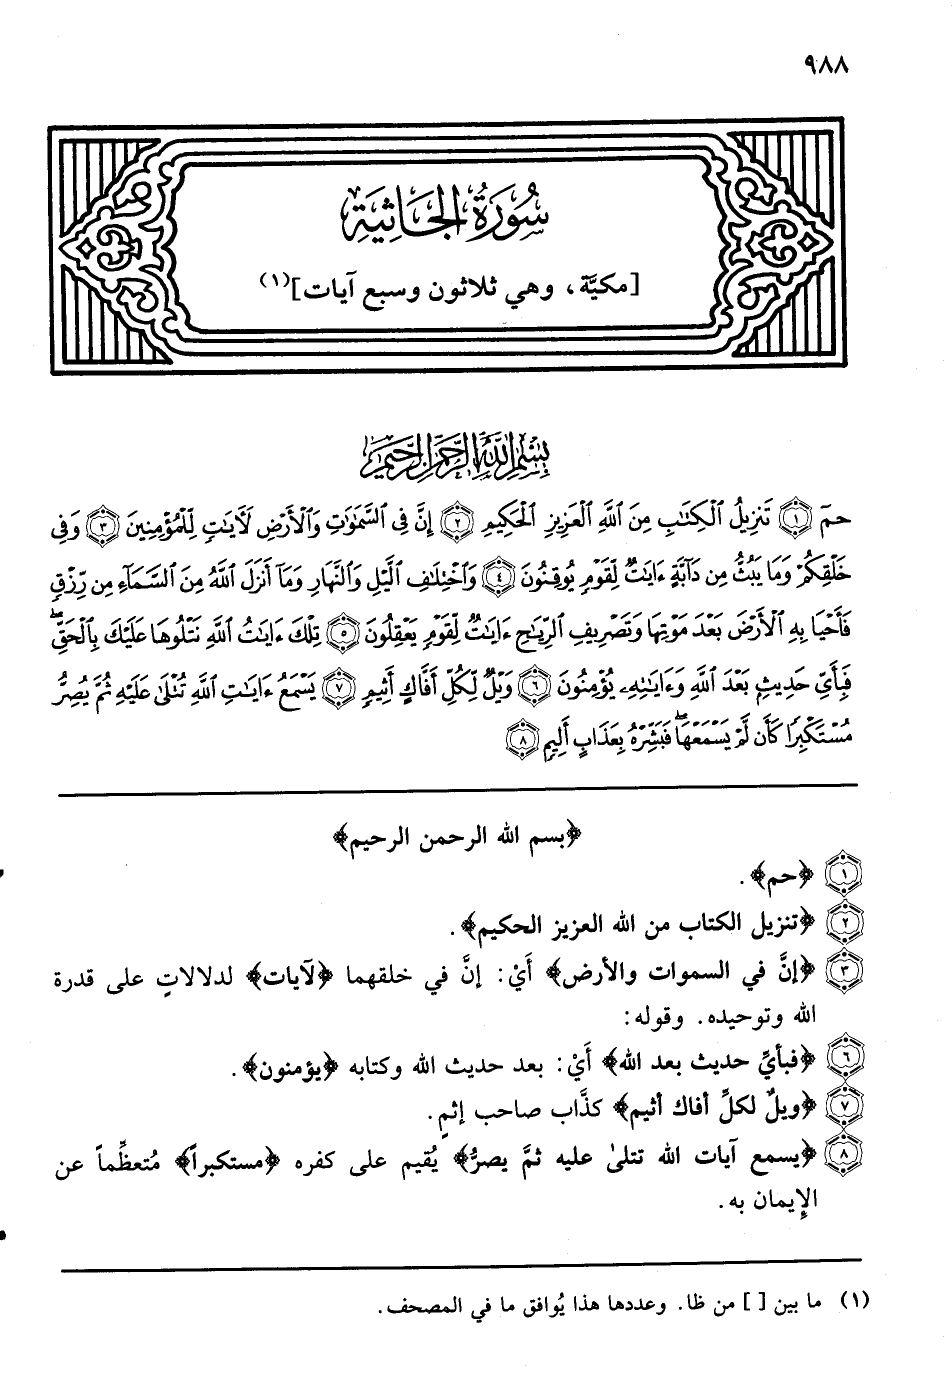 ٩٨٨
سُورَةُ الجَاثِيَةِ
[مكيَّة، وهي ثلاثون وسبع آيات](١)
بِسْمِ اللَّهِ الرَّحْمَنِ الرَّحِيمِ
حمٓ ١ تَنزِيلُ ٱلْكِتَٰبِ مِنَ ٱللَّهِ ٱلْعَزِيزِ ٱلْحَكِيمِ ٢ إِنَّ فِى ٱلسَّمَٰوَٰتِ وَٱلْأَرْضِ لَءَايَٰتٍ لِّلْمُؤْمِنِينَ ٣ وَفِى
خَلْقِكُمْ وَمَا يَبُثُّ مِن دَآبَّةٍ ءَايَٰتٌ لِّقَوْمٍ يُوقِنُونَ ٤ وَٱخْتِلَٰفِ ٱلَّيْلِ وَٱلنَّهَارِ وَمَآ أَنزَلَ ٱللَّهُ مِنَ ٱلسَّمَآءِ مِن رِّزْقٍ
فَأَحْيَا بِهِ ٱلْأَرْضَ بَعْدَ مَوْتِهَا وَتَصْرِيفِ ٱلرِّيَٰحِ ءَايَٰتٌ لِّقَوْمٍ يَعْقِلُونَ ٥ تِلْكَ ءَايَٰتُ ٱللَّهِ نَتْلُوهَا عَلَيْكَ بِٱلْحَقِّۖ
فَبِأَىِّ حَدِيثٍۭ بَعْدَ ٱللَّهِ وَءَايَٰتِهِۦ يُؤْمِنُونَ ٦ وَيْلٌ لِّكُلِّ أَفَّاكٍ أَثِيمٍ ٧ يَسْمَعُ ءَايَٰتِ ٱللَّهِ تُتْلَىٰ عَلَيْهِ ثُمَّ يُصِرُّ
مُسْتَكْبِرًا كَأَن لَّمْ يَسْمَعْهَاۖ فَبَشِّرْهُ بِعَذَابٍ أَلِيمٍ ٨
﴿بسم الله الرحمن الرحيم﴾
١ ﴿حم﴾.
٢ ﴿تنزيل الكتاب من الله العزيز الحكيم﴾.
٣ ﴿إنَّ في السموات والأرض﴾ أَيْ: إنَّ في خلقهما ﴿لآيات﴾ لدلالاتٍ على قدرة
الله وتوحيده. وقوله:
٦ ﴿فبأيِّ حديث بعد الله﴾ أَيْ: بعد حديث الله وكتابه ﴿يؤمنون﴾.
٧ ﴿ويلٌ لكلِّ أفاك أثيم﴾ كذَّاب صاحب إثمٍ.
٨ ﴿يسمع آيات الله تتلىٰ عليه ثمَّ يصرُّ﴾ يُقيم على كفره ﴿مستكبراً﴾ مُتعظِّماً عن
الإِيمان به.
(١) ما بين [ ] من ظا. وعددها هذا يُوافق ما في المصحف.